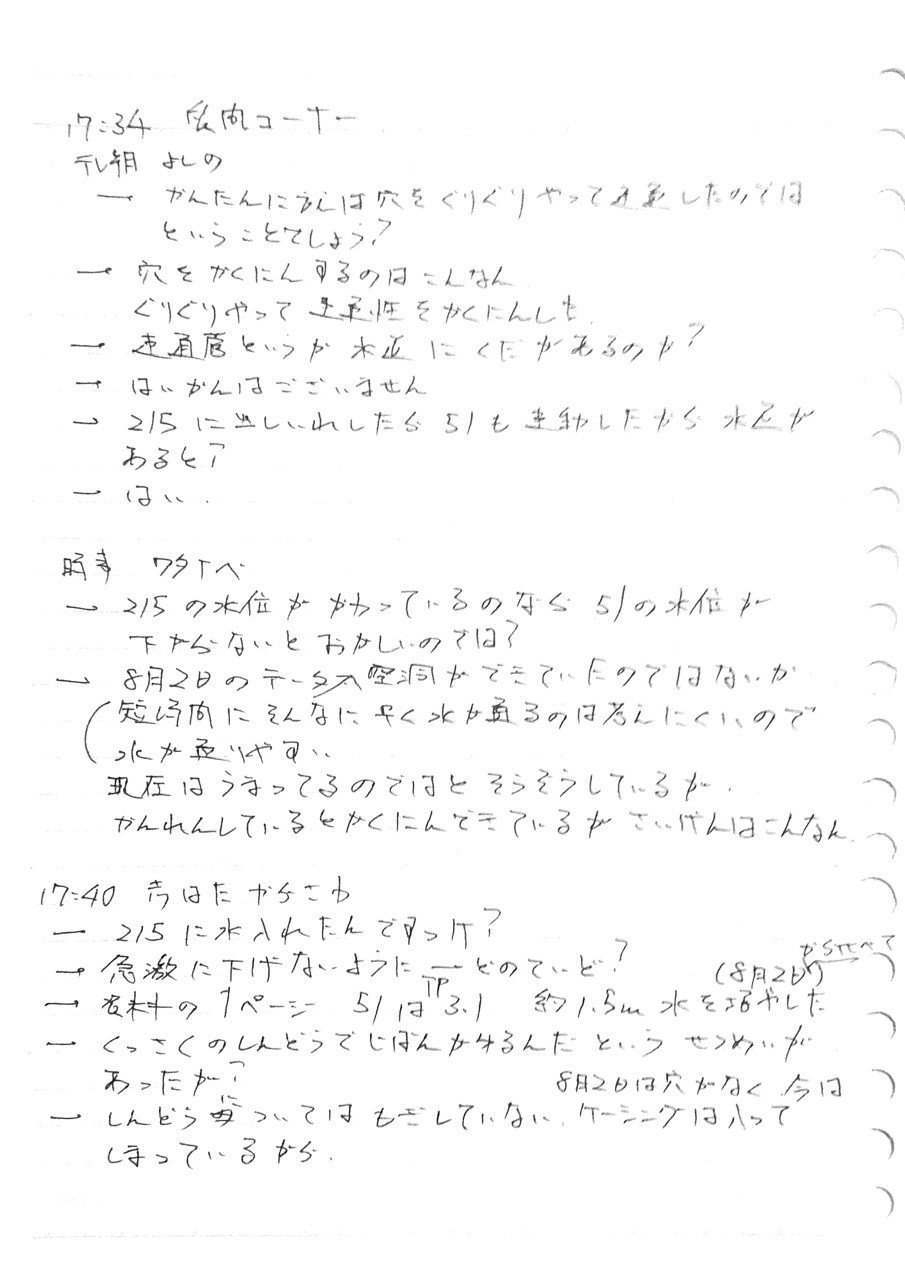 17:34 質問コーナー
テレ朝 よしの
→ かんたんに言えば穴をぐりぐりやって連通したのでは
ということでしょう?
→ 穴をかくにんするのはこんなん
ぐりぐりやって連通性をかくにんした
→ 連通管というか 水圧にくだがあるのか?
→ はいかんはございません
→ 215に出しいれしたら51も連動したから 水圧が
あると?
→ はい.
時事 ワタナベ
→ 215の水位がかわっているのなら51の水位が
下がらないとおかしいのでは?
→ 8月2日のデータ入 空洞ができていたのではないか
(短時間にそんなに早く水が通るのは考えにくいので
水が通りやすい
現在はうまってるのではとそうぞうしているが.
かんれんしているとかくにんできているがさいけんはこんなん.
17:40 赤はた からさわ
→ 215に水入れたんですっけ?
→ 急激に下げないように — どのていど?
からすべて
(8月2日)
→ 資料の1ページ 51はTP3.1 約1.5m 水を増やした
→ くっさくのしんどうでじばんが されるんだ というせつめいが
あったが?
8月2日は穴がなく 今は
→ しんどうについてはもぎしていない. ケーシングは入って
しまっているから.